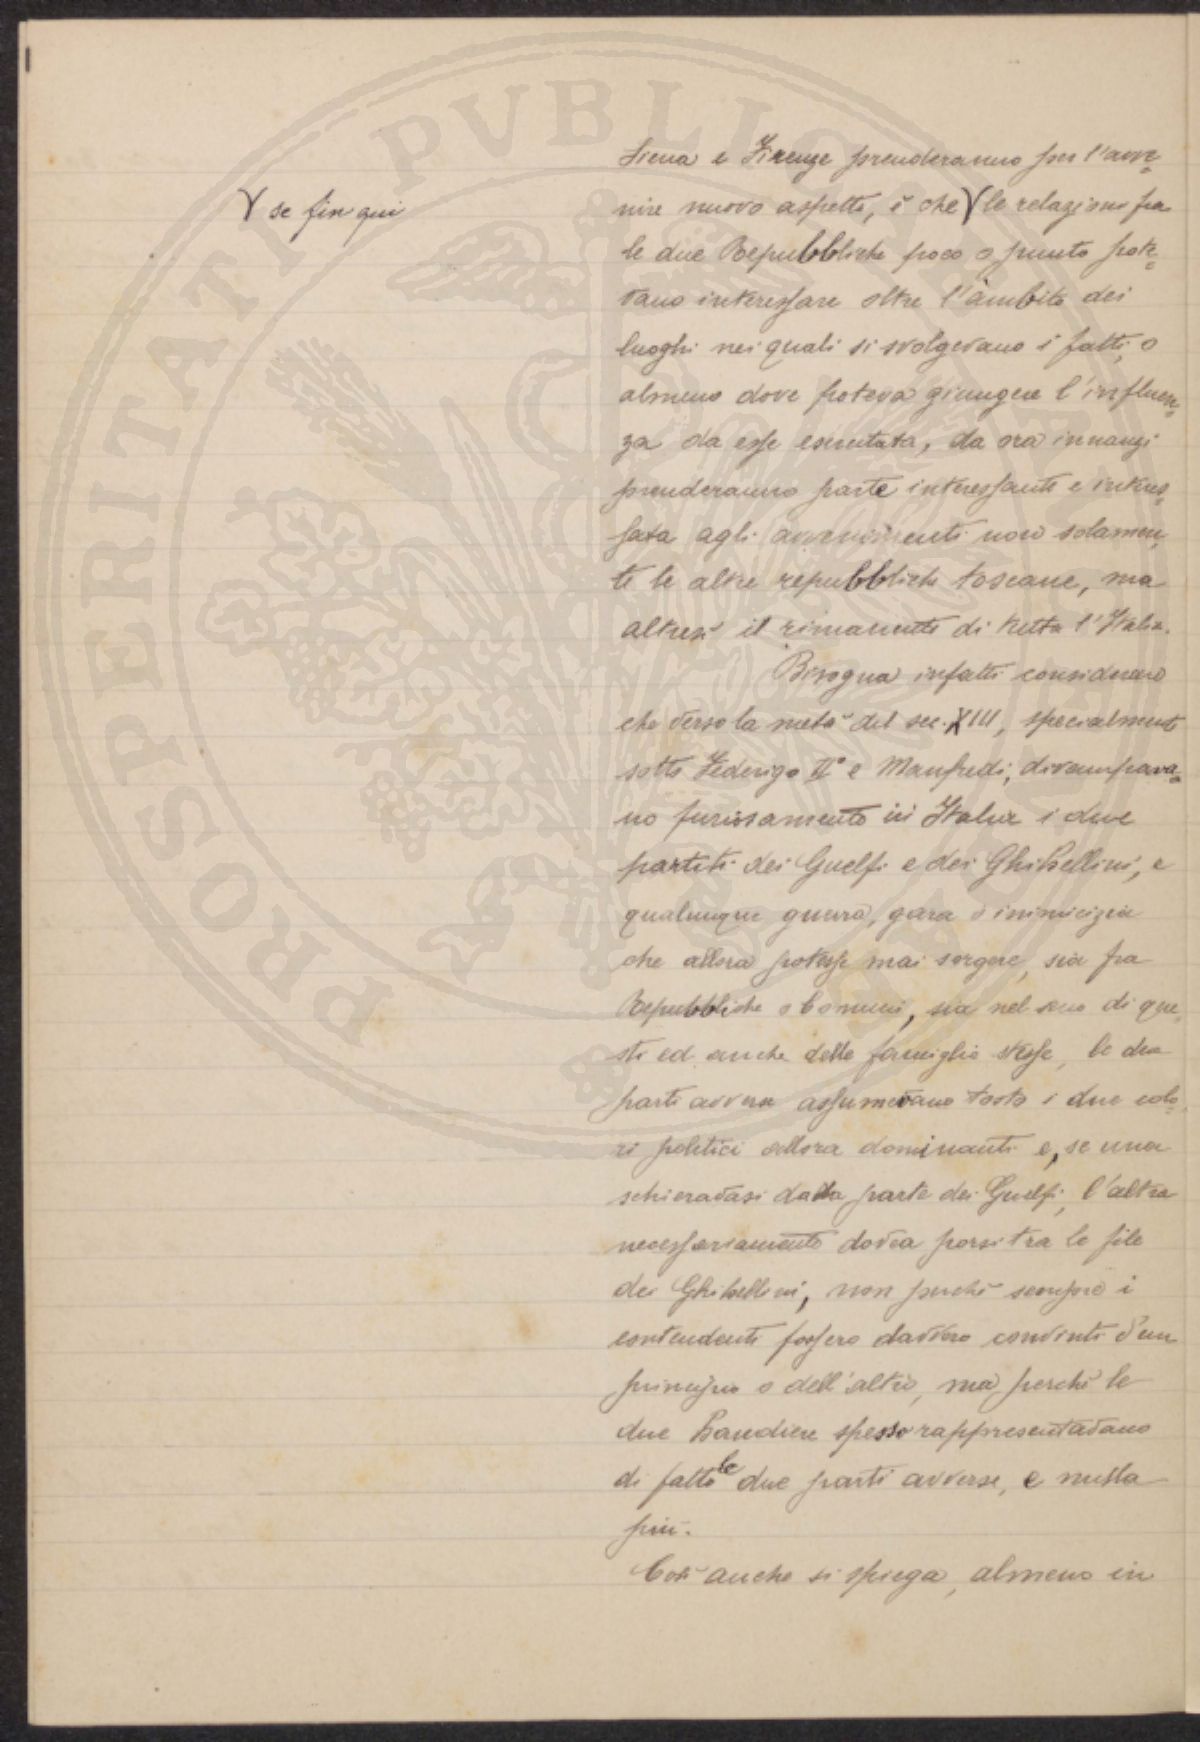 PROSPERITATI PVBLICAE
Siena e Firenze prenderanno per l'avve-
nire nuovo aspetto, è che √ le relazioni fra
√ se fin qui
le due Repubbliche poco o punto pote-
vano interessare oltre l'ambito dei
luoghi nei quali si svolgevano i fatti, o
almeno dove poteva giungere l'influen-
za da esse esercitata, da ora innanzi
prenderanno parte interessante e interes-
sata agli avvenimenti non solamen-
te le altre repubbliche toscane, ma
altresì il rimanente di tutta l'Italia.
Bisogna infatti considerare
che verso la metà del sec. XIII, specialmente
sotto Federigo II° e Manfredi, divampava-
no furiosamente in Italia i due
partiti dei Guelfi e dei Ghibellini, e
qualunque guerra, gara o inimicizia
che allora potesse mai sorgere, sia fra
Repubbliche o Comuni, sia nel seno di que-
sti ed anche delle famiglie stesse, le due
parti avverse assumevano tosto i due colo-
ri politici allora dominanti e, se una
schieravasi dalla parte dei Guelfi, l'altra
necessariamente dovea porsi tra le file
dei Ghibellini, non perchè sempre i
contendenti fossero davvero convinti d'un
principio o dell'altro, ma perchè le
due bandiere spesso rappresentavano
di fatto le due parti avverse, e nulla
più.
Così anche si spiega, almeno in